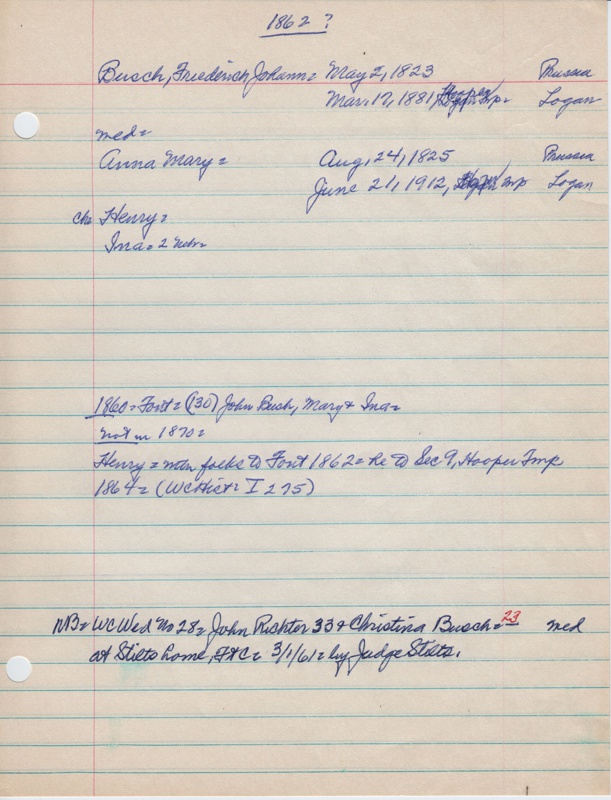 1862 ?
Busch, Friederich Johann = May 2, 1823 Prussia
Mar. 17, 1881, Logan
med =
Anna Mary = Aug. 24, 1825 Prussia
June 21, 1912, Logan
ch Henry =
Ina = 2 Nebr =
1860 = Font = (130) John Bush, Mary & Ina =
not in 1870 =
Henry = with folks to Font 1862 = he to Sec 9, Hooper Tmp
1864 = (WCHist = I 275)
NB = WC Wed No 28 = John Richter 33 & Christina Busch = 23 med
at Stilts home, F&C = 3/1/61 = by Judge Stilts.